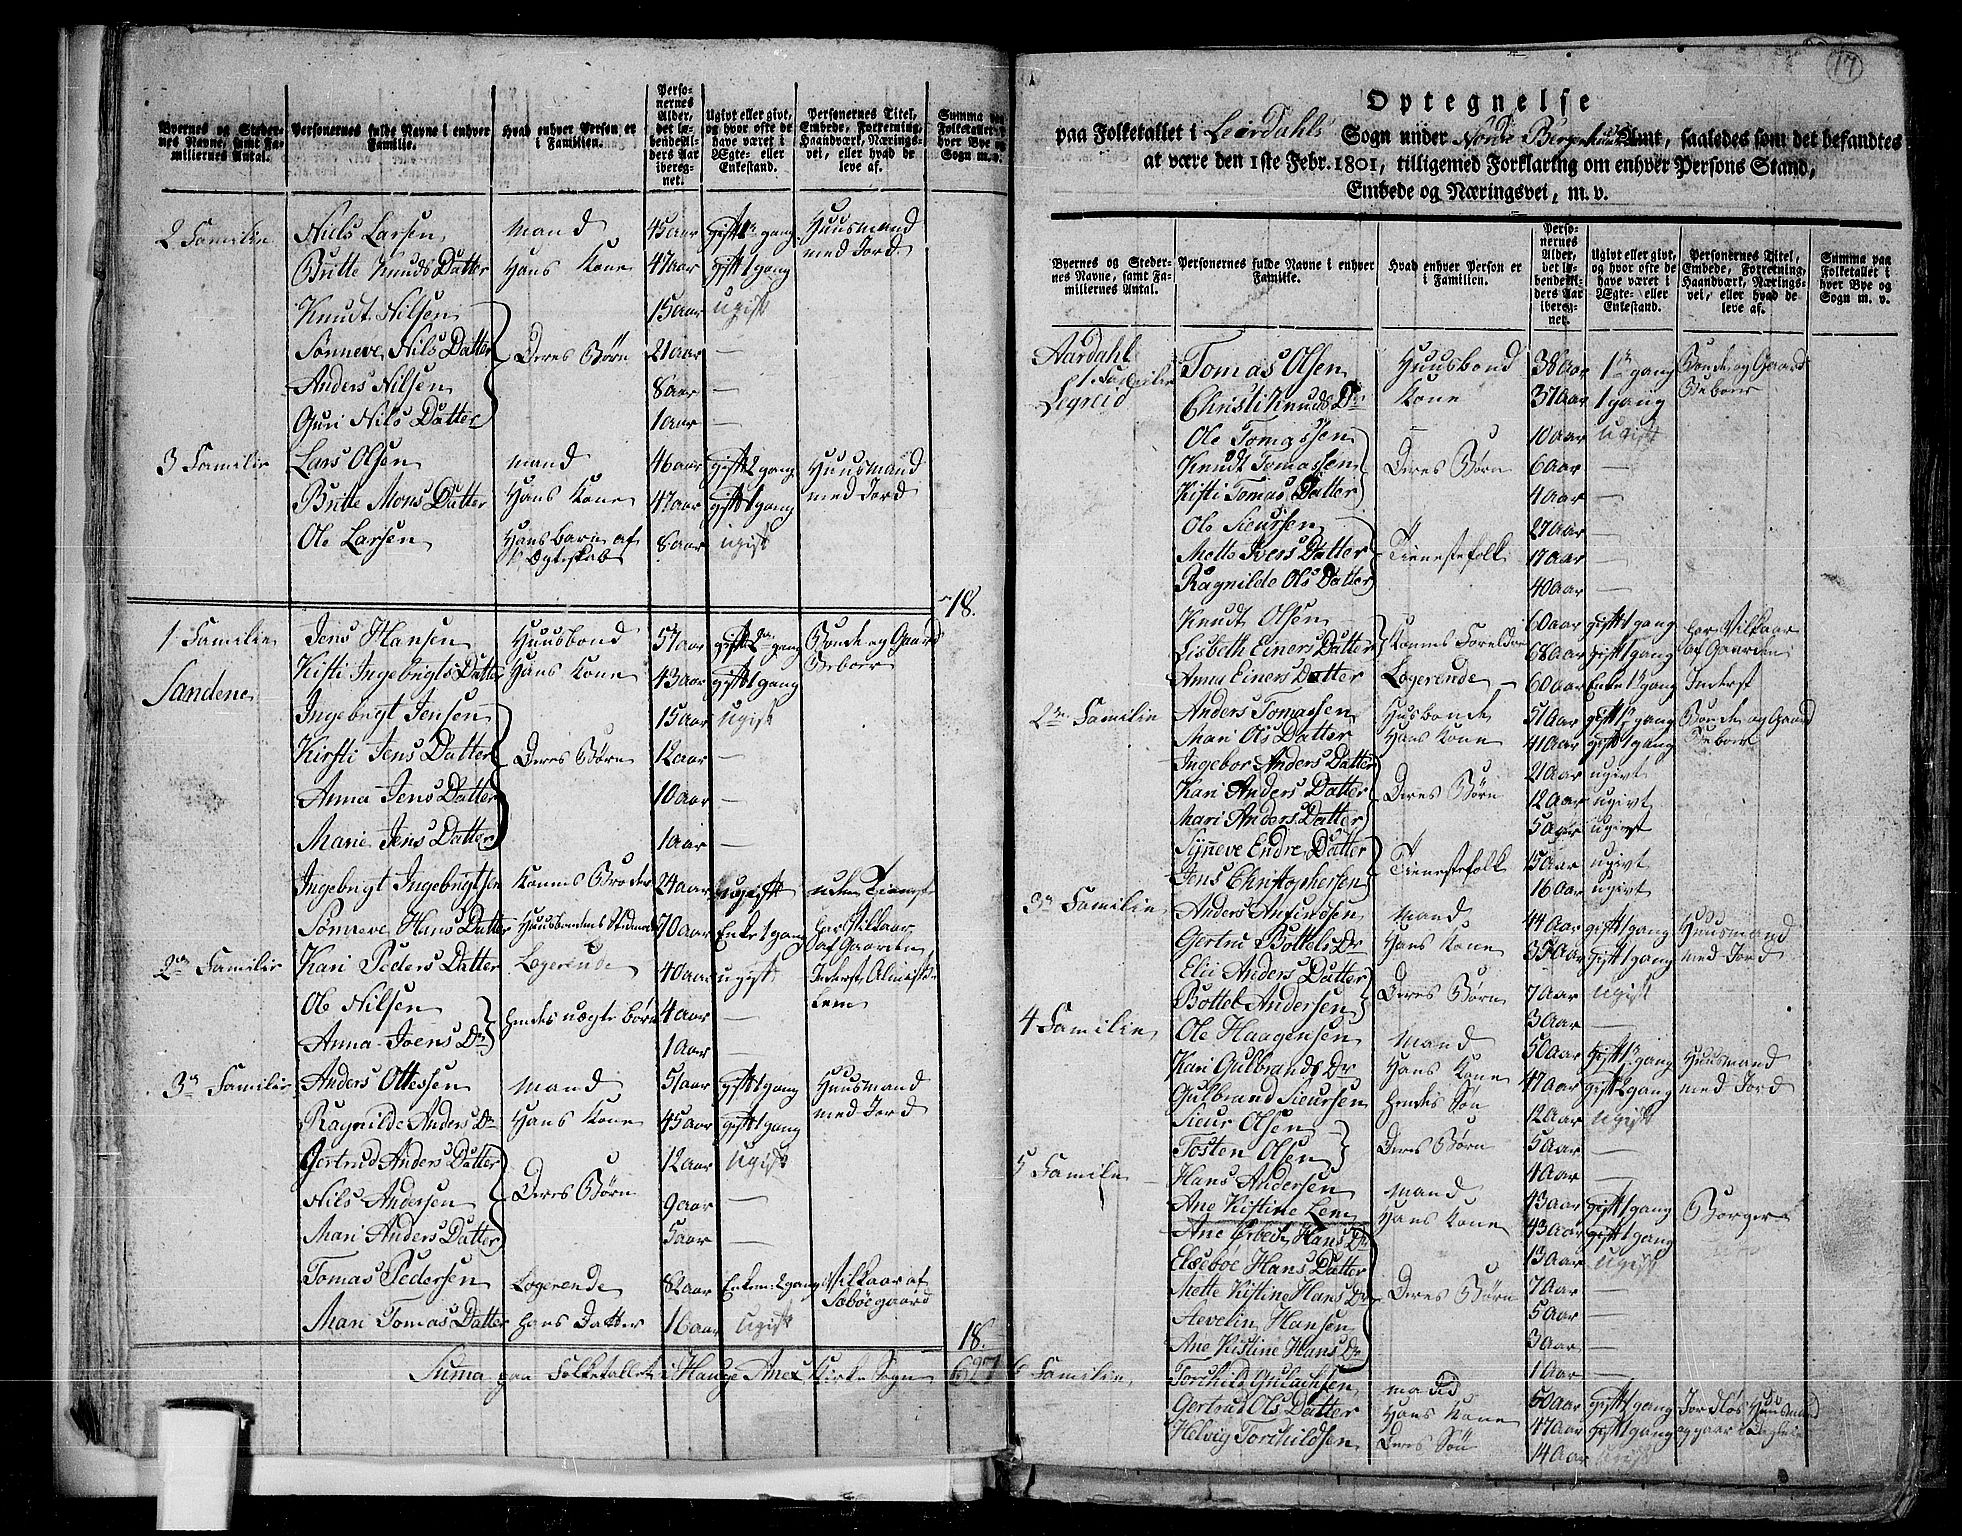 Byernes og Stedernes Navne, samt Familiernes Antal.
Personernes fulde Navne i enhver Familie.
Hvad enhver Person er i Familien.
Personernes Alder, det løbendeAlders Aar iberegnet.
Ugivt eller givt, og hvor ofte de have været i Ægte- eller Enkestand.
Personernes Titel, Embede, Forretning, Haandværk, Næringsvei, eller hvad de leve af.
Summa paa Folketallet i hver Bye og Sogn m. v.
2 Familie Niels Larsen mand 45 aar gift 2 gang Huusmand med Jord
Britte Knuds Datter Hans Kone 47 aar gift 1 gang
Knudt Nilsen 15 aar ugift
Sønneve Nils Datter Deres Børn 21 aar —
Anders Nilsen 8 aar —
Guri Nils Datter 1 aar —
3 Familie Lars Olsen mand 46 aar gift 2 gang Huusmand med Jord
Britte Mons Datter Hans Kone 47 aar gift 1 gang
Ole Larsen Hans barn af Ægteskab 8 aar ugift
18.
1 Familie Jens Hansen Huusbond 57 aar gift 2 gang Bonde og Gaard Beboer
Sandene Kisti Ingebrigts Datter Hans Kone 43 aar gift 1 gang
Ingebrigt Jensen 15 aar ugift
Kirsti Jens Datter Deres Børn 12 aar —
Anna Jens Datter 10 aar —
Marie Jens Datter 1 aar —
Ingebrigt Ingebrigtsen Konens Broder 24 aar ugift
Sønneve Hans Datter Huusbondens 70 aar Enke 1 gang har Vilkaar af Gaarden
2 Familie Kari Peders Datter Logerende 40 aar ugift Inderst Almisse Lem
Ole Nilsen hendes uægte børn 4 aar —
Anna Joens Dr 1 aar —
3 Familie Anders Ottessen mand 51 aar gift 1 gang Huusmand med Jord
Ragnilde Anders Dr Hans Kone 45 aar gift 1 gang
Gertrud Anders Datter 12 aar ugift
Nils Andersen Deres Børn 9 aar —
Mari Anders Datter 5 aar —
Tomas Pedersen Logerende 82 aar Enkem. 2 gang Vilkaar af Sæbøe gaard
Mari Tomas Datter hans Datter 16 aar ugift
18.
Suma paa Folketallet i Hauge Anex Kirke Sogn 627
17
Optegnelse
paa Folketallet i Leirdahls Sogn under Nordre Bergenhuus Amt, saaledes som det befandtes
at være den 1ste Febr. 1801, tilligemed Forklaring om enhver Persons Stand,
Embede og Næringsvei, m. v.
Byernes og Stedernes Navne, samt Familiernes Antal.
Personernes fulde Navne i enhver Familie.
Hvad enhver Person er i Familien.
Personernes Alder, det løbende Alders Aar iberegnet.
Ugivt eller givt, og hvor ofte de have været i Ægte- eller Enkestand.
Personernes Titel, Embede, Forretning, Haandværk, Næringsvei, eller hvad de leve af.
Summa paa Folketallet i hver Bye og Sogn m. v.
Aardahl 1 Familie Tomas Olsen Huusbond 38 aar 1 gang Bonde og Gaard Beboer
Legreid Christi Knuds Dr Kone 37 aar 1 gang
Ole Tomassen 10 aar ugift
Knudt Tomassen Deres Børn 6 aar —
Kisti Tomas Datter 4 aar —
Ole Sieursen 27 aar —
Mette Ivers Datter Tienestefolk 17 aar —
Ragnilde Ols Datter 40 aar —
Knudt Olsen 60 aar gift 1 gang har Vilkaar af Gaarden
Lisbeth Einers Datter Konens Foreldre 68 aar gift 1 gang
Anna Einers Datter Logerende 60 aar Enke 1 gang Inderst
2 Familie Anders Tomassen Husbonde 51 aar gift 1 gang Bonde og Gaard Beboer
Mari Ols Datter Hans Kone 41 aar gift 1 gang
Ingebor Anders Datter 21 aar ugivt
Kari Anders Datter Deres Børn 12 aar ugivt
Mari Anders Datter 5 aar ugivt
Synneve Endre Datter Tienestefolk 15 aar ugivt
Jens Christophersen 16 aar ugivt
3 Familie Anders Anfindsen mand 44 aar gift 1 gang Huusmand med Jord
Gertru Bottels Dr Hans Kone 39 aar gift 1 gang
Elii Anders Datter Deres Børn 7 aar ugift
Bottel Andersen 3 aar —
4 Familie Ole Haagensen mand 50 aar gift 1 gang Huusmand med Jord
Kari Gulbrands Dr Hans Kone 47 aar gift 2 gang
Gulbrand Sieursen hendes Søn 12 aar ugift
Sieur Olsen Deres Børn 5 aar —
Tosten Olsen 4 aar —
5 Familie Hans Andersen mand 43 aar gift 1 gang Borger
Ane Kistine Lem Hans Kone 43 aar gift 1 gang
Ane Hans Dr 13 aar ugift
Elsebøe Hans Datter 7 aar —
Mette Kistine Hans Dr Deres Børn 5 aar —
Stevelin Hansen 3 aar —
Ane Kistine Hans Dr 1 aar —
6 Familie Torchild Gulachsen mand 50 aar gift 1 gang Jordløs Huusmand
Gertrud Ols Datter Hans Kone 47 aar gift 1 gang
Helvig Torchildsen Deres Søn 14 aar ugift